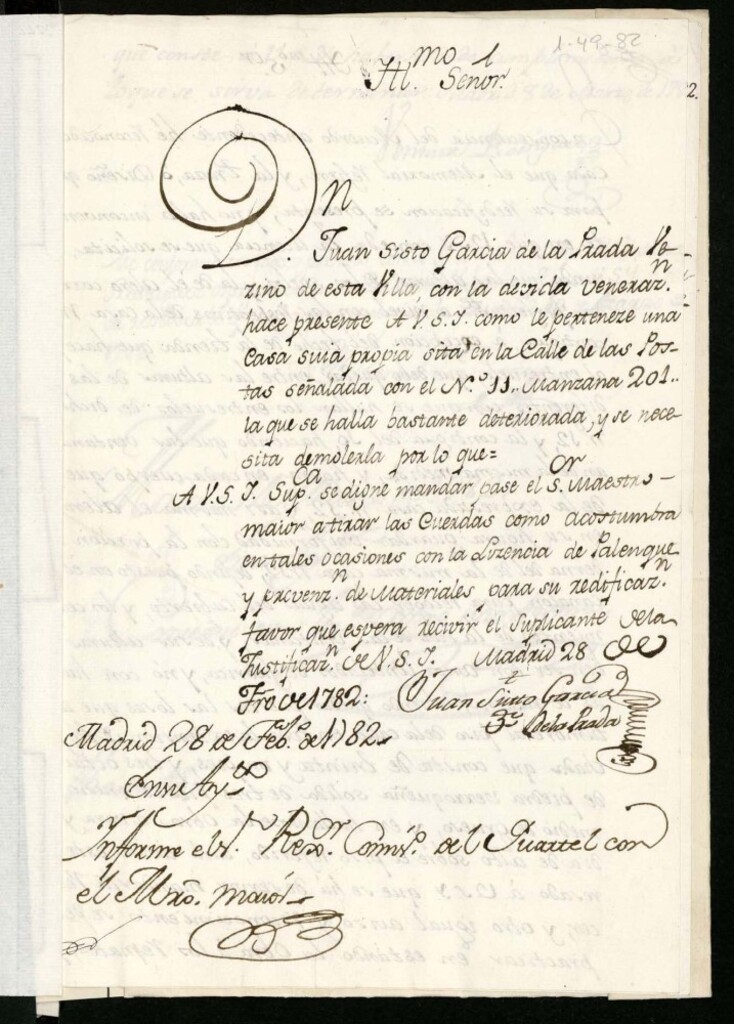 1-49-82
Ill.mo Señor.
2.
Dn
Juan Sisto Garcia de la Prada Ve-
zino de esta Villa, con la devida veneraz.n
hace presente A V.S.I. como le perteneze una
Casa suia propia sita en la Calle de las Pos-
tas señalada con el N.º 11. Manzana 201..
la que se halla bastante deteriorada, y se nece-
sita demolerla por lo que=
A V.S.I. Sup.ca se digne mandar pase el S.or Maestro-
maior a tirar las Cuerdas como acostumbra
en tales ocasiones con la Lizencia de Palenque
y prevenz.n de Materiales para su redificaz.n
favor que espera recivir el Suplicante de la
Justificaz.n de V.S.I. Madrid 28 de
Fro de 1782:
Juan Sixto Garcia
de la Prada
Madrid 28 de Feb.º de 1782.
En su Ay.to
Informe el S.r Rex.or Comis.º del Quartel con
el Mro. maior